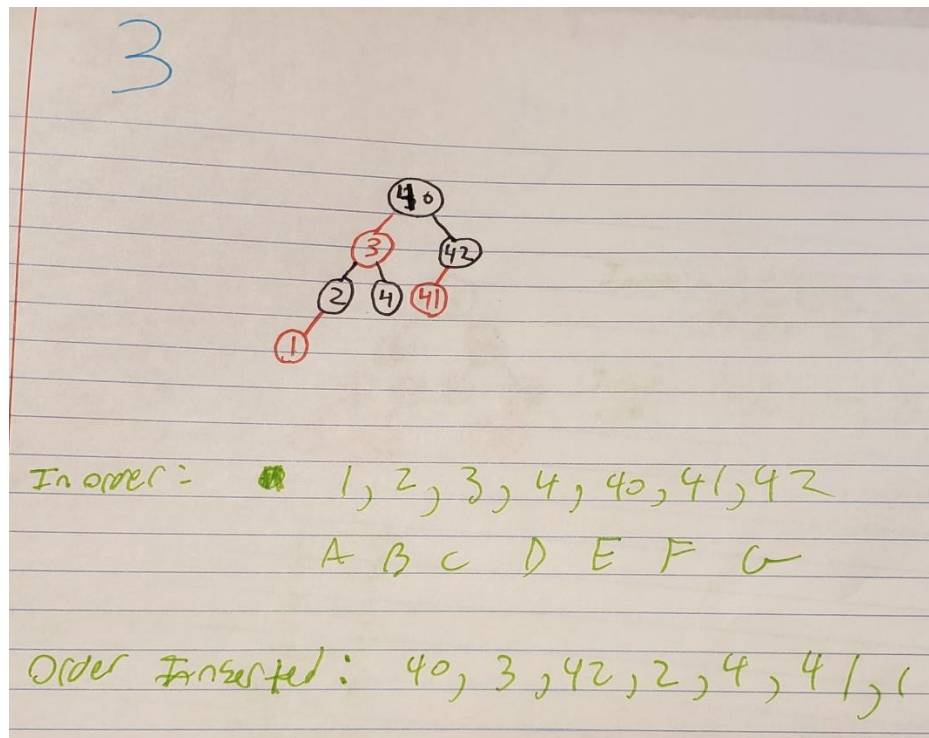 3
40
3 42
2 4 41
1
Inorder: 1, 2, 3, 4, 40, 41, 42
A B C D E F G
Order Inserted: 40, 3, 42, 2, 4, 41, 1